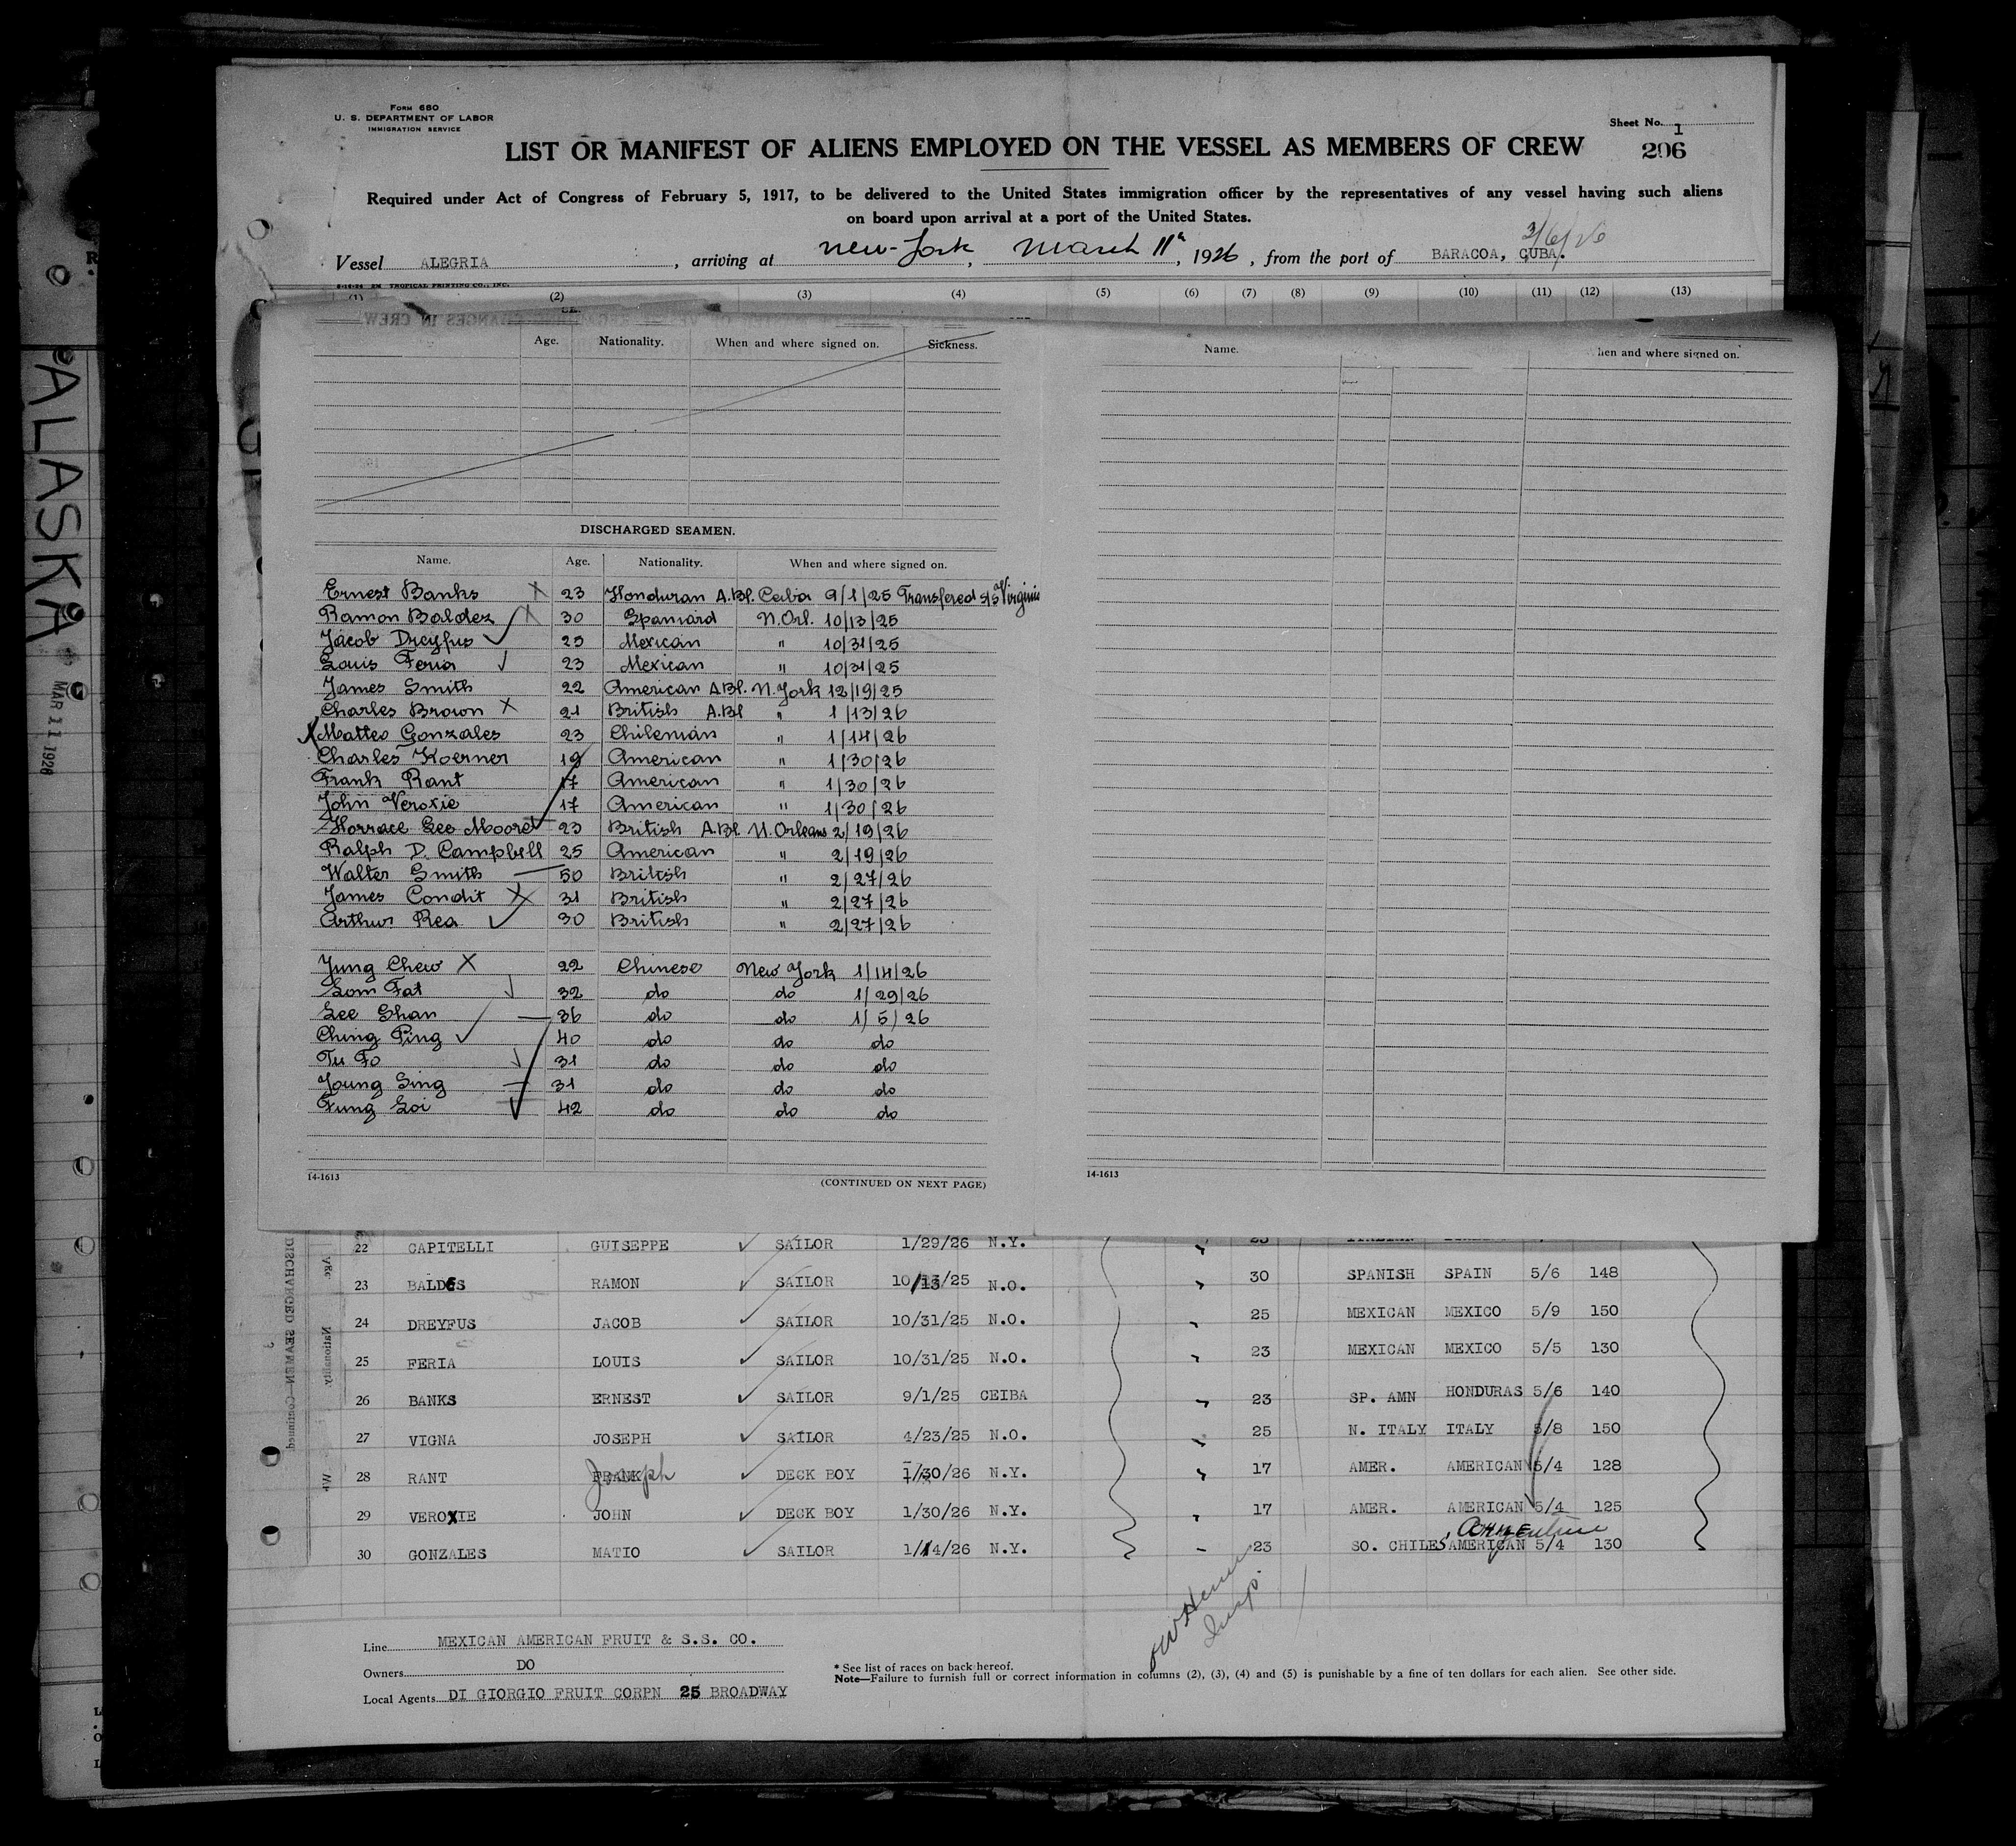 FORM 680
U. S. DEPARTMENT OF LABOR
IMMIGRATION SERVICE
Sheet No. 1
206
LIST OR MANIFEST OF ALIENS EMPLOYED ON THE VESSEL AS MEMBERS OF CREW
Required under Act of Congress of February 5, 1917, to be delivered to the United States immigration officer by the representatives of any vessel having such aliens
on board upon arrival at a port of the United States.
3/6/26
Vessel ALEGRIA, arriving at New-York, March 11", 1926, from the port of BARACOA, CUBA.
TROPICAL PRINTING CO., INC.
(1) (2) (3) (4) (5) (6) (7) (8) (9) (10) (11) (12) (13)
Age. Nationality. When and where signed on. Sickness. Name. hen and where signed on.
DISCHARGED SEAMEN.
Name. Age. Nationality. When and where signed on.
Ernest Banks X 23 Honduran A.Bl. Ceiba 9/1/25 Transfered s/s Virginia
Ramon Baldez X 30 Spaniard N.Orl. 10/13/25
Jacob Dreyfus 25 Mexican " 10/31/25
Louis Feria 23 Mexican " 10/31/25
James Smith 22 American A.Bl. N.York 12/19/25
Charles Brown X 21 British A.Bl " 1/13/26
X Matteo Gonzales 23 Chilenian " 1/14/26
Charles Koerner 19 American " 1/30/26
Frank Rant 17 American " 1/30/26
John Veroxie 17 American " 1/30/26
Horrace Lee Moore 23 British A.Bl N.Orleans 2/19/26
Ralph D. Campbell 25 American " 2/19/26
Walter Smith 50 British " 2/27/26
James Condit X 31 British " 2/27/26
Arthur Rea 30 British " 2/27/26
Yung Chew X 22 Chinese New York 1/14/26
Lom Fat 32 do do 1/29/26
Lee Shan 36 do do 1/5/26
Ching Ping 40 do do do
Tu Fo 31 do do do
Young Sing 31 do do do
Fung Loi 42 do do do
14-1613 (CONTINUED ON NEXT PAGE) 14-1613
22 CAPITELLI GUISEPPE SAILOR 1/29/26 N.Y.
23 BALDES RAMON SAILOR 10/13/25 N.O. 30 SPANISH SPAIN 5/6 148
24 DREYFUS JACOB SAILOR 10/31/25 N.O. 25 MEXICAN MEXICO 5/9 150
25 FERIA LOUIS SAILOR 10/31/25 N.O. 23 MEXICAN MEXICO 5/5 130
26 BANKS ERNEST SAILOR 9/1/25 CEIBA 23 SP. AMN HONDURAS 5/6 140
27 VIGNA JOSEPH SAILOR 4/23/25 N.O. 25 N. ITALY ITALY 5/8 150
28 RANT FRANK Joseph DECK BOY 1/30/26 N.Y. 17 AMER. AMERICAN 5/4 128
29 VEROXIE JOHN DECK BOY 1/30/26 N.Y. 17 AMER. AMERICAN 5/4 125
Argentine
30 GONZALES MATIO SAILOR 1/14/26 N.Y. 23 SO. CHILE AMERICAN 5/4 130
Insp.
Line MEXICAN AMERICAN FRUIT & S.S. CO.
Owners DO
Local Agents DI GIORGIO FRUIT CORPN 25 BROADWAY
* See list of races on back hereof.
Note—Failure to furnish full or correct information in columns (2), (3), (4) and (5) is punishable by a fine of ten dollars for each alien. See other side.
ALASKA
MAR 11 1926